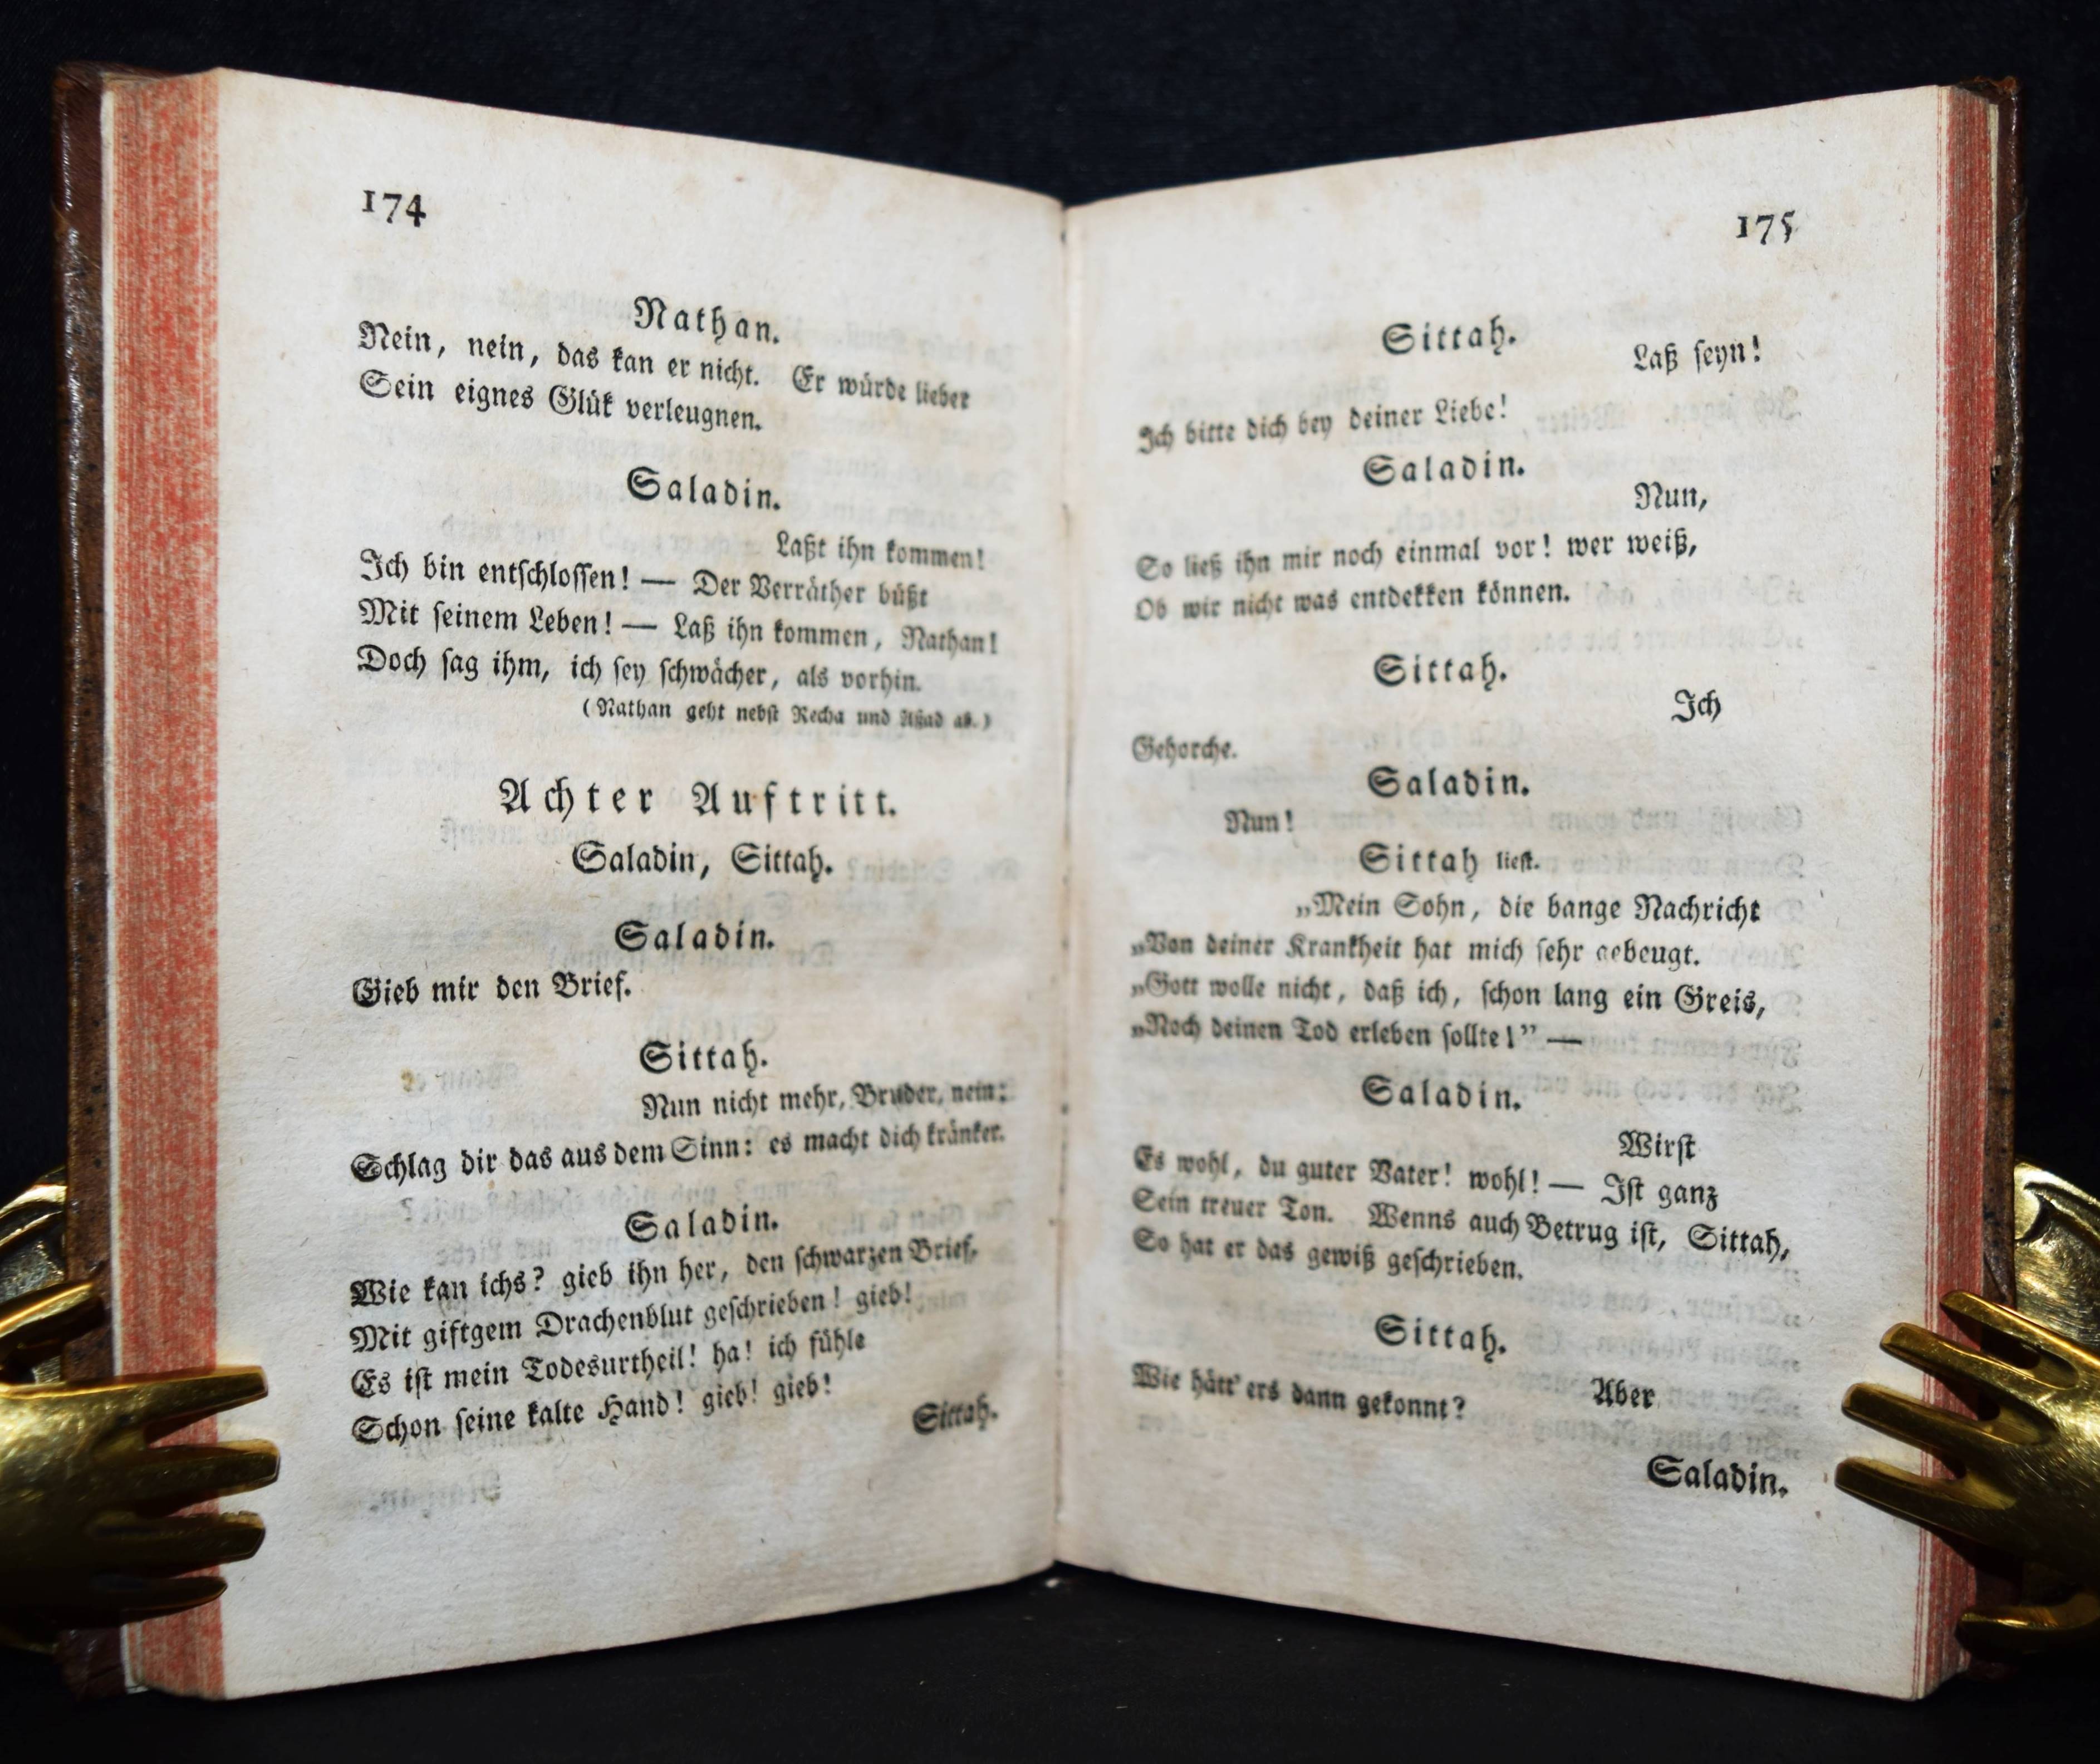 174
Nathan.
Nein, nein, das kan er nicht. Er würde lieber
Sein eignes Glük verleugnen.
Saladin.
Laßt ihn kommen!
Ich bin entſchloſſen! — Der Verräther büßt
Mit ſeinem Leben! — Laß ihn kommen, Nathan!
Doch ſag ihm, ich ſey ſchwächer, als vorhin.
(Nathan geht nebſt Recha und Aſſad ab.)
Achter Auftritt.
Saladin, Sittah.
Saladin.
Gieb mir den Brief.
Sittah.
Nun nicht mehr, Bruder, nein:
Schlag dir das aus dem Sinn: es macht dich kränker.
Saladin.
Wie kan ichs? gieb ihn her, den ſchwarzen Brief,
Mit giftgem Drachenblut geſchrieben! gieb!
Es iſt mein Todesurtheil! ha! ich fühle
Schon ſeine kalte Hand! gieb! gieb!
Sittah.
175
Sittah.
Laß ſeyn!
Ich bitte dich bey deiner Liebe!
Saladin.
Nun,
So ließ ihn mir noch einmal vor! wer weiß,
Ob wir nicht was entdekken können.
Sittah.
Ich
Gehorche.
Saladin.
Nun!
Sittah lieſt.
„Mein Sohn, die bange Nachricht
„Von deiner Krankheit hat mich ſehr gebeugt.
„Gott wolle nicht, daß ich, ſchon lang ein Greis,
„Noch deinen Tod erleben ſollte!” —
Saladin.
Wirſt
Es wohl, du guter Vater! wohl! — Iſt ganz
Sein treuer Ton. Wenns auch Betrug iſt, Sittah,
So hat er das gewiß geſchrieben.
Sittah.
Aber
Wie hätt' ers dann gekonnt?
Saladin.